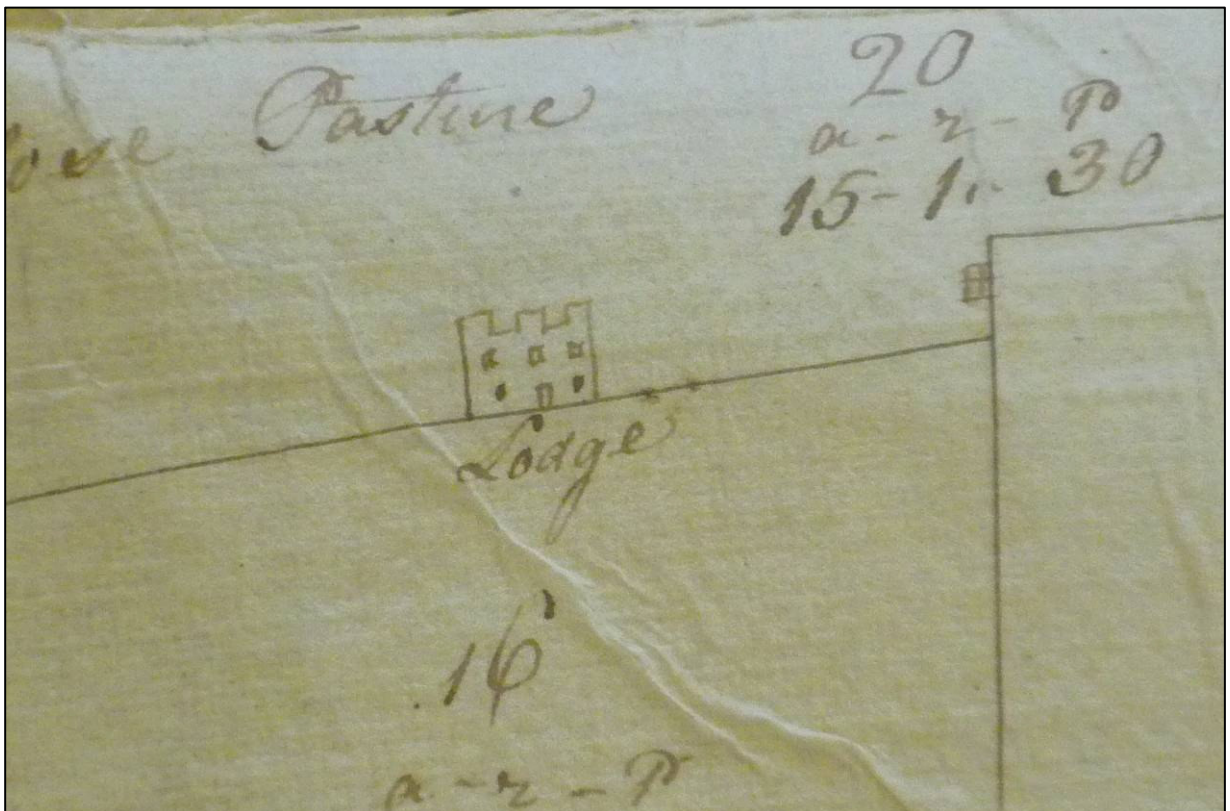 Pasture
20
a - r - P
15 - 1 - 30
Lodge
16
a - r - P